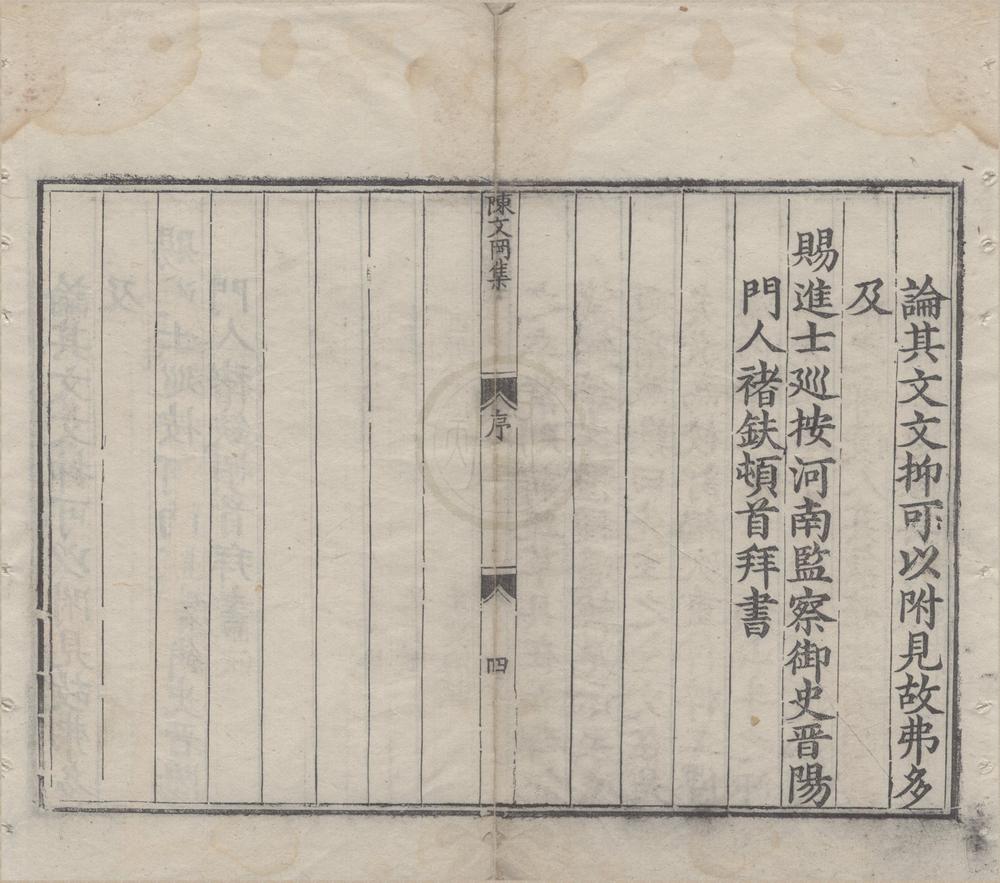 論其文文抑可以附見故弗多
及
賜進士廵按河南監察御史晋陽
門人褚鈇頓首拜書
陳文岡集
序
四